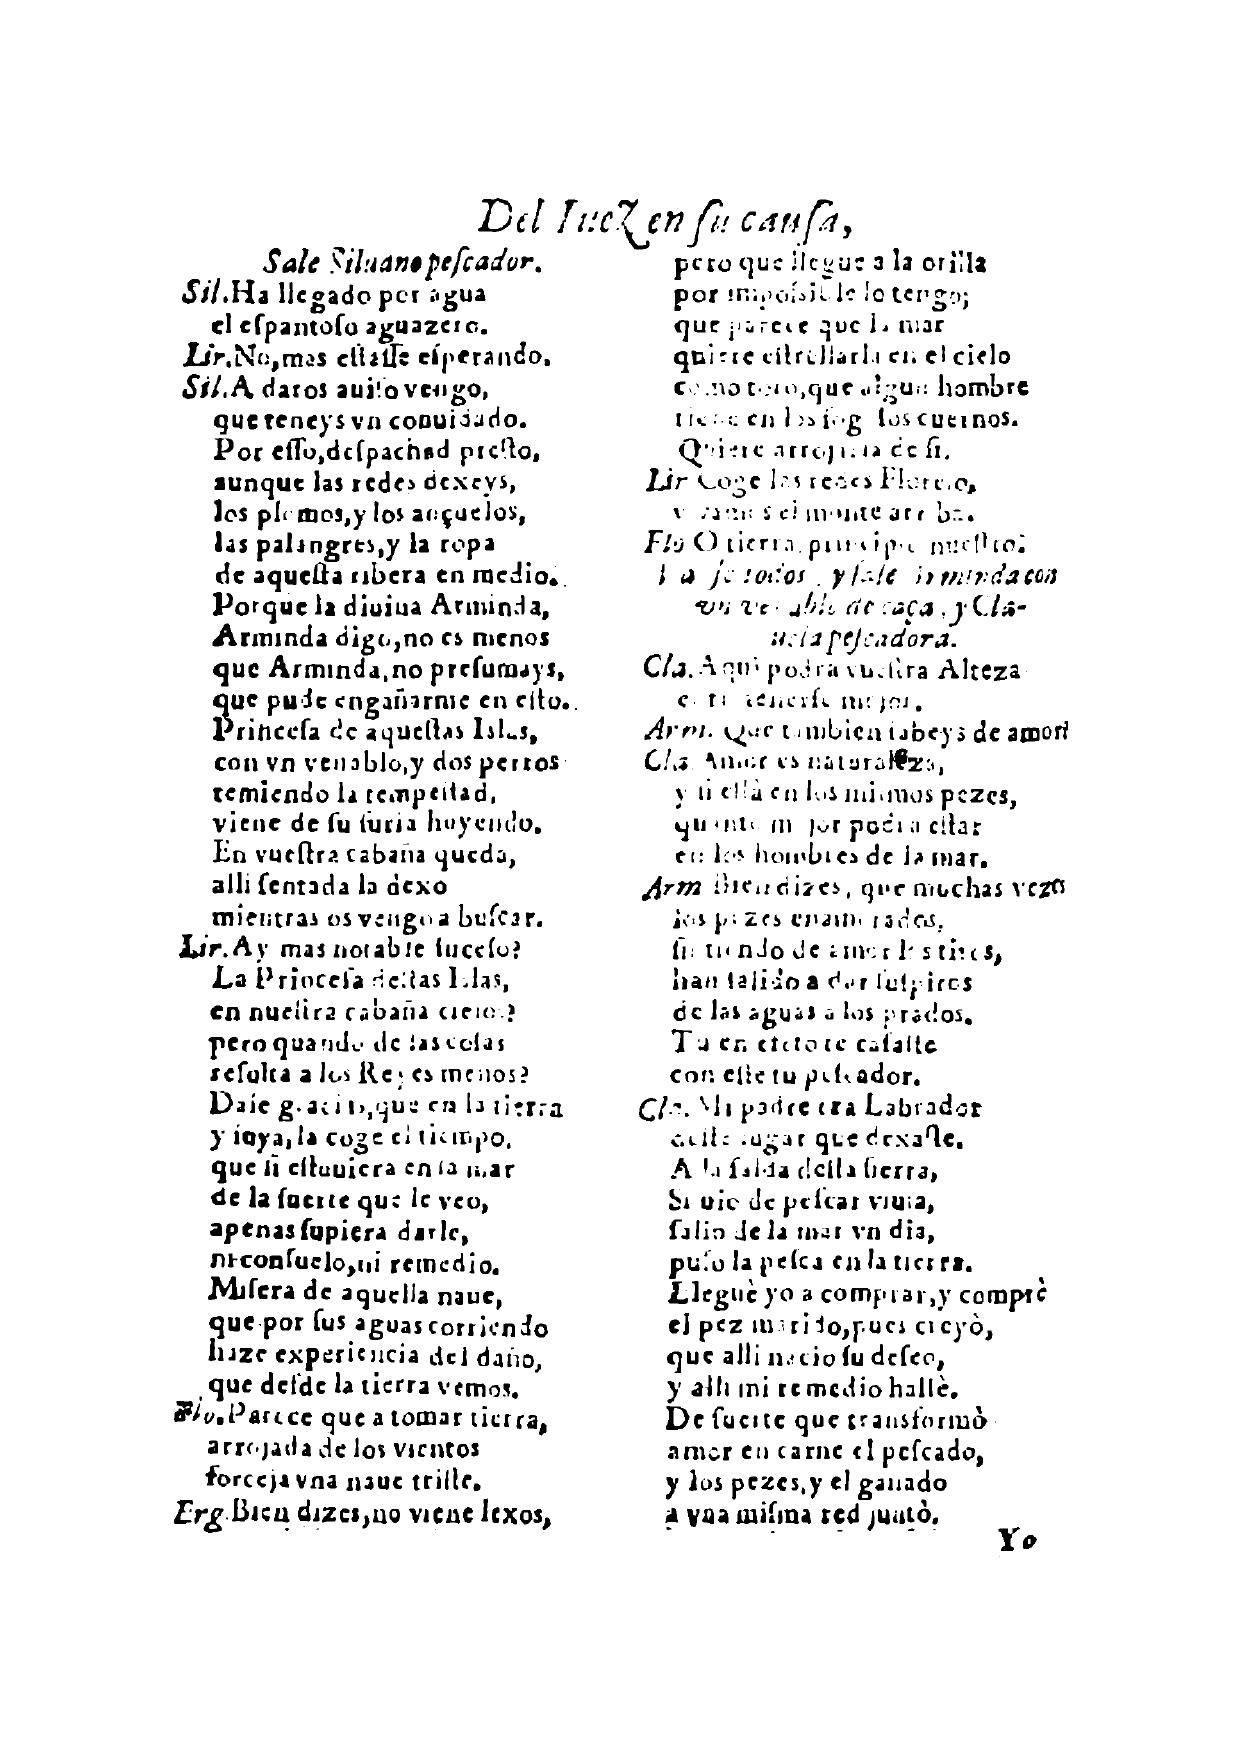 Del Iuez en ſu cauſa,
Sale Siluano peſcador.
Sil. Ha llegado por agua
el eſpantoſo aguazero.
Lir. No, mas eſtaſſe eſperando.
Sil. A daros auiſo vengo,
que teneys vn conuidado.
Por eſſo, deſpachad preſto,
aunque las redes dexeys,
los plomos, y los ançuelos,
las palangres, y la ropa
de aqueſta ribera en medio.
Porque la diuina Arminda,
Arminda digo, no es menos
que Arminda, no preſumays,
que pude engañarme en eſto.
Princeſa de aqueſtas Islas,
con vn venablo, y dos perros
temiendo la tempeſtad,
viene de ſu furia huyendo.
En vueſtra cabaña queda,
alli ſentada la dexo
mientras os vengo a buſcar.
Lir. Ay mas notable ſuceſo?
La Princeſa deſtas Islas,
en nueſtra cabaña cielo?
pero quando de las coſas
reſulta a los Reyes menos?
Dale gracias, que en la tierra
y ſuya, la coge el tiempo,
que ſi eſtuuiera en la mar
de la ſuerte que le veo,
apenas ſupiera darle,
ni conſuelo, ni remedio.
Miſera de aquella naue,
que por ſus aguas corriendo
haze experiencia del daño,
que deſde la tierra vemos.
Flo. Parece que a tomar tierra,
arrojada de los vientos
forceja vna naue triſte.
Erg. Bien dizes, no viene lexos,
pero que llegue a la orilla
por impoſsible lo tengo;
que parece que la mar
quiere eſtrellarla en el cielo
como toro, que algun hombre
tiene en los los cuernos.
Quiere arrojarla de ſi.
Lir Coge las redes Florelo,
vamos el monte arriba.
Flo O tierra, principio nueſtro!
y ſale Arminda con
vn venablo de caça, y Clauela peſcadora.
Cla. Aqui podrà vueſtra Alteza
mejor.
Arm. Que tambien ſabeys de amor?
Cla Amor es naturaleza,
y ſi eſtà en los miſmos pezes,
quanto mejor podra eſtar
en los hombres de la mar.
Arm Bien dizes, que muchas vezes
los pezes enamorados,
ſintiendo de amor los tiros,
han ſalido a dar ſuſpiros
de las aguas a los prados.
Tu en efeto te caſaſte
con eſſe tu peſcador.
Cla. Mi padre era Labrador
lugar que dexaſte.
A la falda deſta ſierra,
Siluio de peſcar viuia,
ſalio de la mar vn dia,
puſo la peſca en la tierra.
Lleguè yo a comprar, y comprè
el pez marido, pues creyò,
que alli nacio ſu deſeo,
y alli mi remedio hallè.
De ſuerte que transformò
amor en carne el peſcado,
y los pezes, y el ganado
a vna miſma red juntò.
Yo